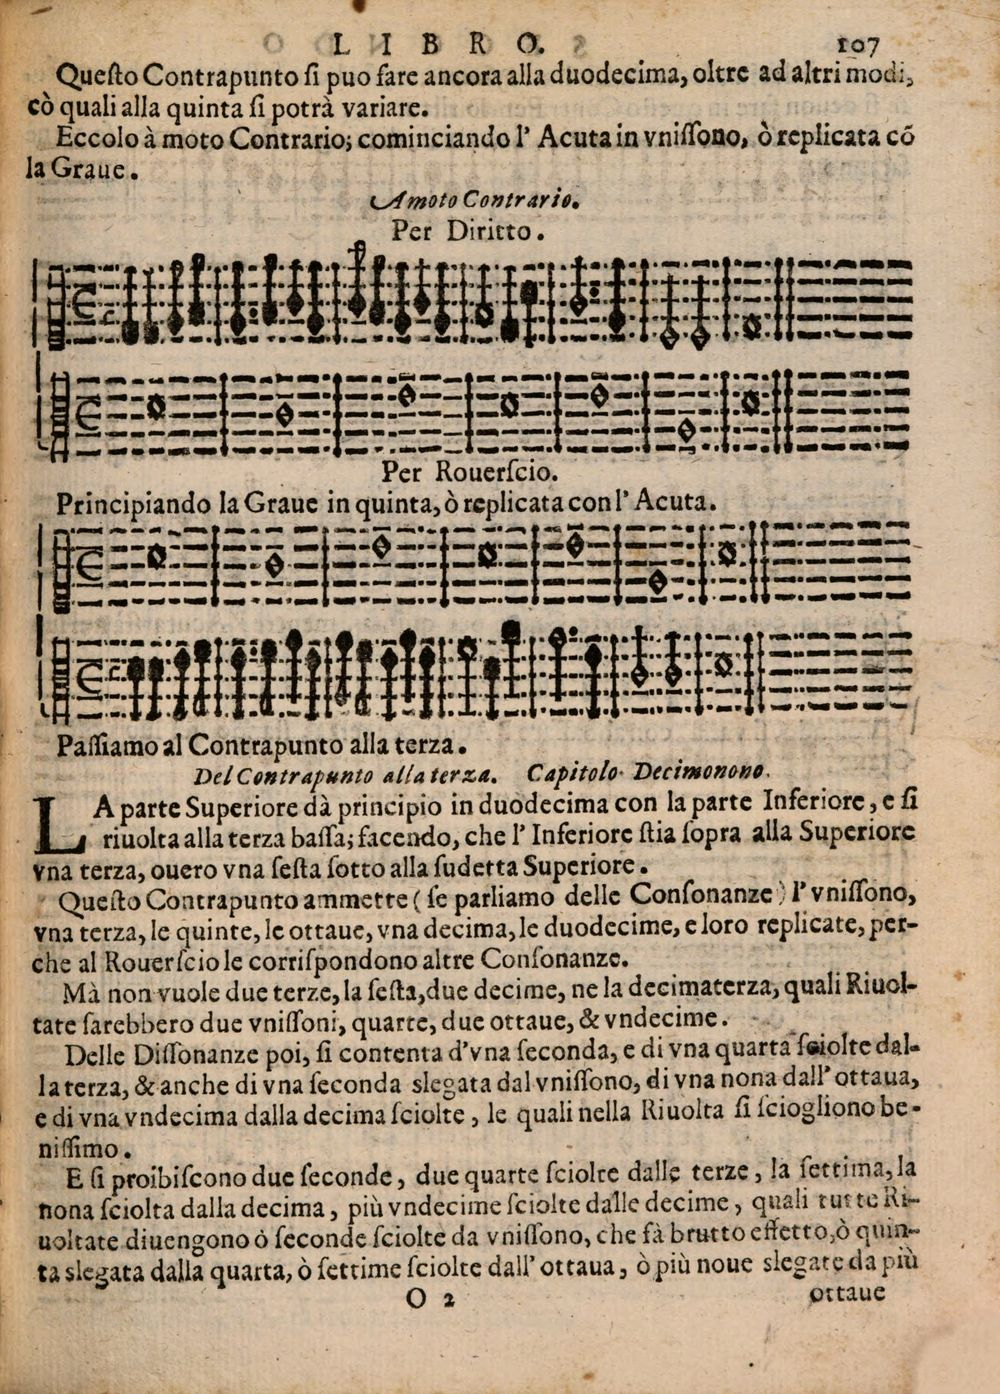 LIBRO. 107
Queſto Contrapunto ſi puo fare ancora alla duodecima, oltre ad altri modi,
cò quali alla quinta ſi potrà variare.
Eccolo à moto Contrario; cominciando l' Acuta in vniſſono, ò replicata cō
la Graue.
A moto Contrario.
Per Diritto.
Per Rouerſcio.
Principiando la Graue in quinta, ò replicata con l' Acuta.
Paſſiamo al Contrapunto alla terza.
Del Contrapunto alla terza. Capitolo Decimonono.
LA parte Superiore dà principio in duodecima con la parte Inferiore, e ſi
riuolta alla terza baſſa; facendo, che l' Inferiore ſtia ſopra alla Superiore
vna terza, ouero vna ſeſta ſotto alla ſudetta Superiore.
Queſto Contrapunto ammette (ſe parliamo delle Conſonanze) l' vniſſono,
vna terza, le quinte, le ottaue, vna decima, le duodecime, e loro replicate, per-
che al Rouerſcio le corriſpondono altre Conſonanze.
Mà non vuole due terze, la ſeſta, due decime, ne la decimaterza, quali Riuol-
tate ſarebbero due vniſſoni, quarte, due ottaue, & vndecime.
Delle Diſſonanze poi, ſi contenta d'vna ſeconda, e di vna quarta ſciolte dal-
la terza, & anche di vna ſeconda slegata dal vniſſono, di vna nona dall' ottaua,
e di vna vndecima dalla decima ſciolte, le quali nella Riuolta ſi ſciogliono be-
niſſimo.
E ſi proibiſcono due ſeconde, due quarte ſciolte dalle terze, la ſettima, la
nona ſciolta dalla decima, più vndecime ſciolte dalle decime, quali tutte Ri-
uoltate diuengono ò ſeconde ſciolte da vniſſono, che fà brutto effetto, ò quin-
ta slegata dalla quarta, ò ſettime ſciolte dall' ottaua, ò più noue slegate da più
O 2 ottaue